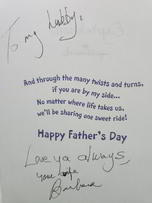 To my hubby:
And through the many twists and turns,
if you are by my side...
No matter where life takes us,
we'll be sharing one sweet ride!
Happy Father's Day
Love ya always,
your wife
Barbara